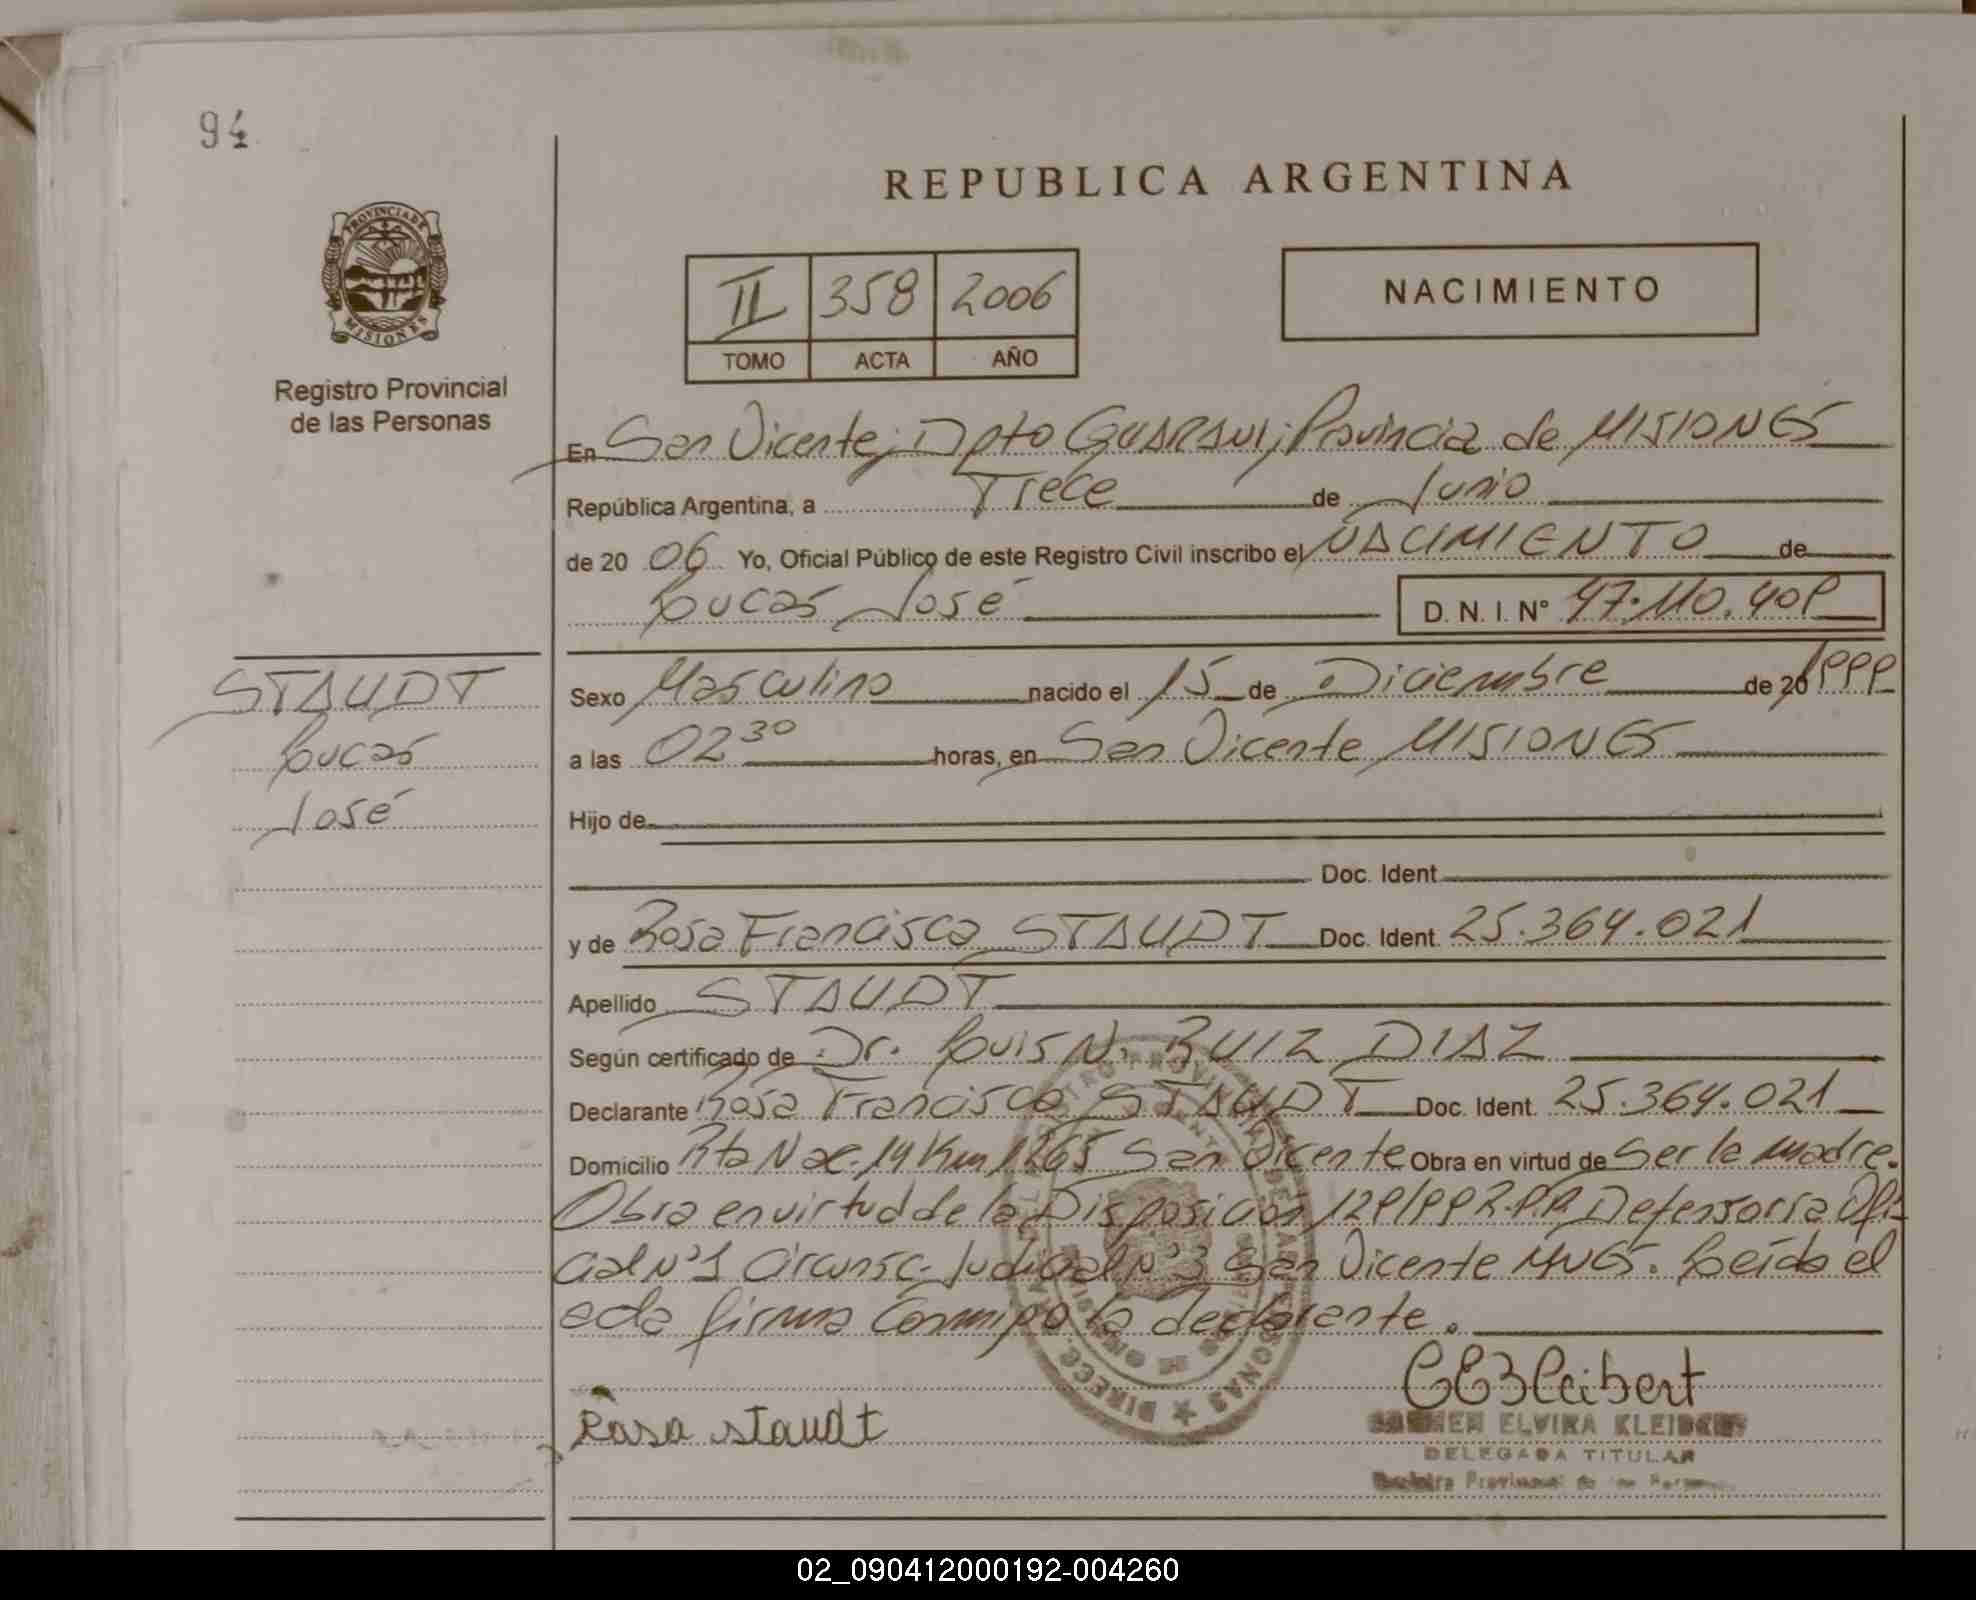 94
REPUBLICA ARGENTINA
PROVINCIA DE
MISIONES
Registro Provincial
de las Personas
II 358 2006
TOMO ACTA AÑO
NACIMIENTO
En San Vicente; Dpto GUARANI; Provincia de MISIONES
República Argentina, a Trece de Junio
de 20 06 Yo, Oficial Público de este Registro Civil inscribo el NACIMIENTO de
Lucas José D. N. I. N° 47.110.409
STAUDT
Lucas
José
Sexo Masculino nacido el 15 de Diciembre de 20 1999
a las 02 30 horas, en San Vicente MISIONES
Hijo de
Doc. Ident.
y de Rosa Francisca STAUDT Doc. Ident. 25.364.021
Apellido STAUDT
Según certificado de Dr. Luis N. RUIZ DIAZ
Declarante Rosa Francisca STAUDT Doc. Ident. 25.364.021
Domicilio Rta Nac. 14 Km 1265 San Vicente Obra en virtud de Ser la madre.
Obra en virtud de la Disposición 129/99 R.P.P. Defensoría Ofi-
cial N°1 Circunsc. Judicial N°3 San Vicente MNES. Leída el
acta firma conmigo la declarante.
Rosa staudt
CEKleibert
CARMEN ELVIRA KLEIBERT
DELEGADA TITULAR
Registro Provincial de las Personas
02_090412000192-004260